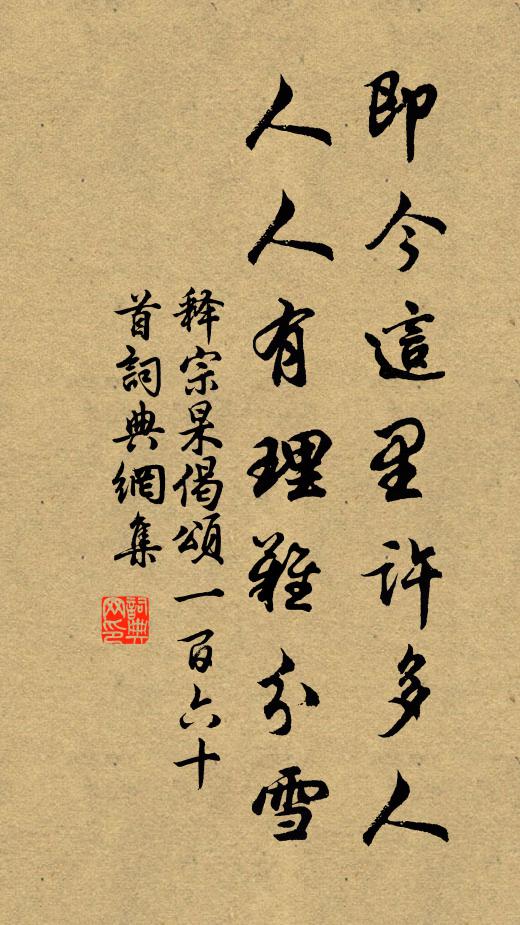 即今這里许多人
人人有理難分雪
释宗杲偈頌一百六十
首詞典網集
詞典
网印